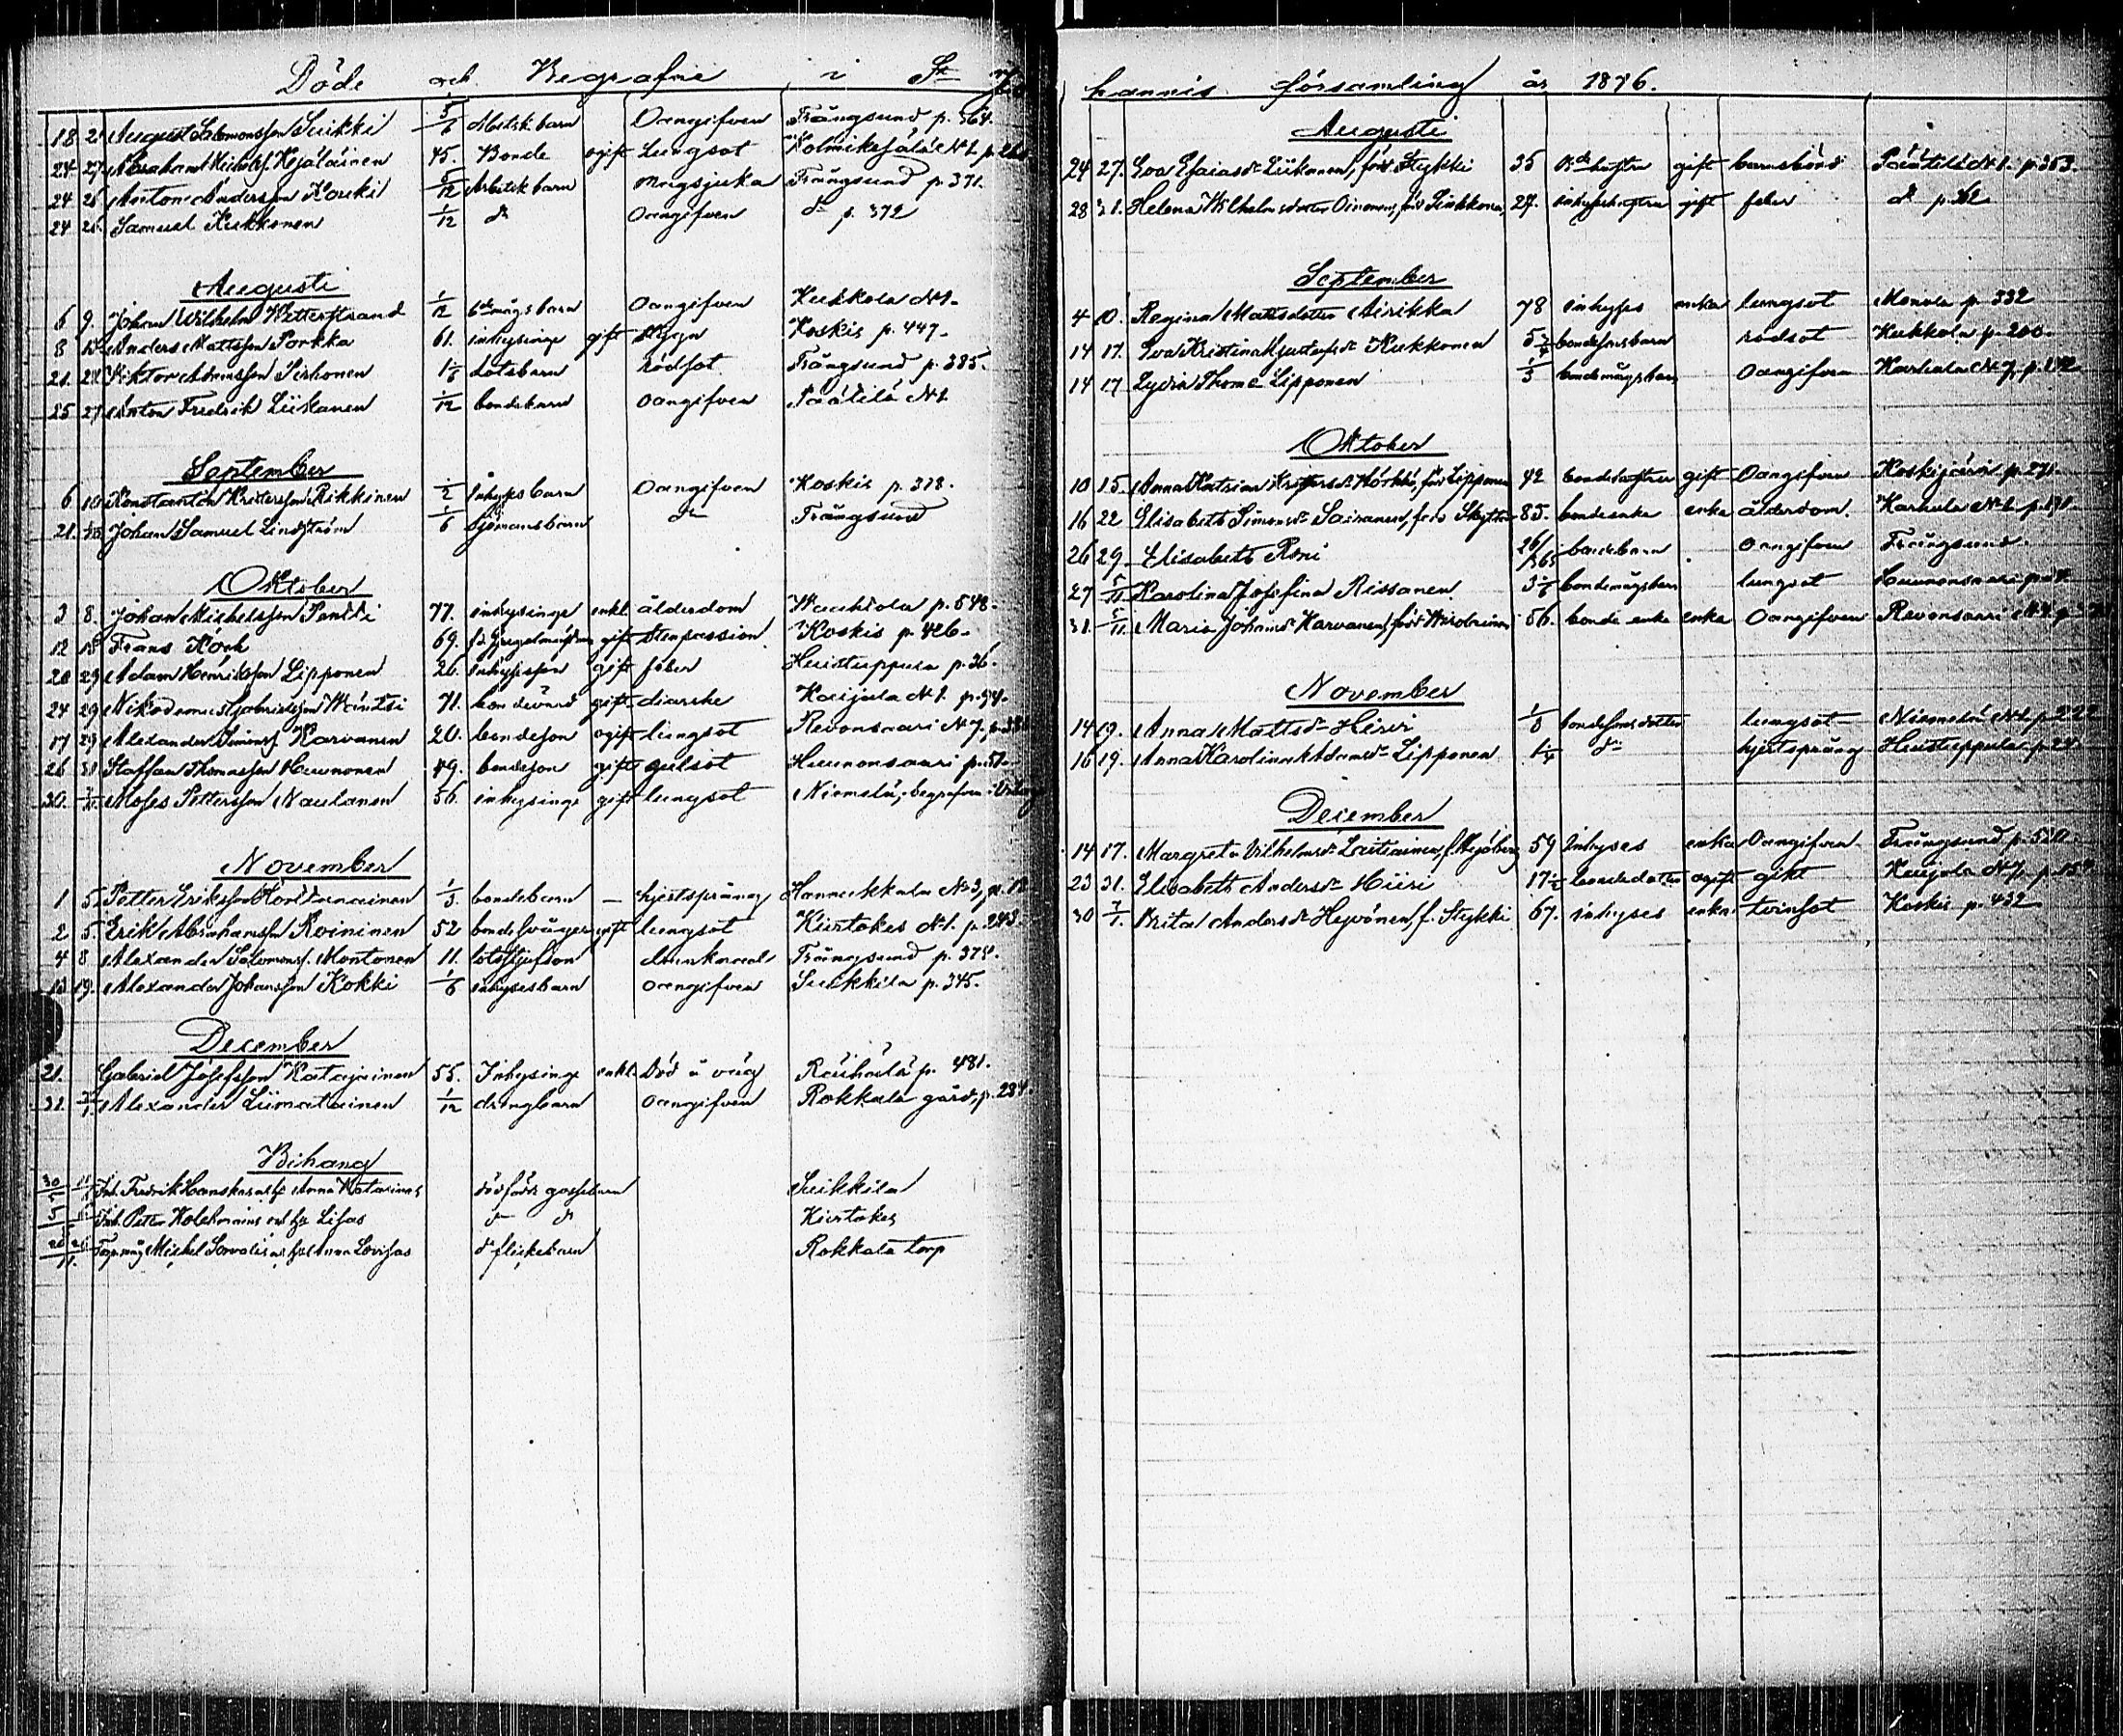 Döde och Begrafne i St Jo
18 2 August Salomonsson Suikki 5/6 Arbetsk.barn Oangifven Trångsund p. 364.
24 27 Abraham Hejäläinen 45. Bonde ogift Lungsot Kolmikesälä N 2. p.
24 26 Anton Andersson Kouki 5/12 Arbetsk barn Magsjuka Trångsund p. 371.
24 26. Samuel Kukkonen 1/12 do Oangifven do p. 372
Augusti
6 9. Johan Wilhelm Wetterstrand 1/12 bdemågsbarn Oangifven Kukkola N1.
8 Anders Mattsson Porkka 61. inhysing gift Koskis p. 447.
21. Viktor Sirkonen 1 1/6 Lotsbarn rödsot Trångsund p. 385.
25 27 Anton Fredrik Liikanen 1/12 bondebarn Oangifven Päätilä N1
September
6 10 Konstantin Kristersson Rikkinen 1/2 Inhysbarn Oangifven Koskis p. 328.
21. Johan Samuel Lindström 1/6 Sjömansbarn do Trångsund
Oktober
3 8. Johan Michelsson Pentti 77. inhysinge enkl. ålderdom p. 548.
12 15 Frans Körk 69. gift Stenpassion Koskis p. 426.
20 29 Adam Henriksson Lipponen 26. inhysson gift feber Huistuppula p. 36.
24 29 Nikodemus Gabrielsson Wäntsi 71. bondevärd gift diarrhe Kaijala N 1. p. 94.
17 29 Alexander Simonss. Karvanen 20. bondeson ogift lungsot Revonsaari N 7.
26 31 Staffan Thomasson Hununen 49. bondeson gift gulsot Huunonsaari p. 57.
30. Moses Pettersson Naulanen 56. inhysinge gift lungsot Niemelä, begrafven i
November
1 5. Petter Eriksson 1/3. bondebarn — hjertsprång Hannukkala N 3, p. 18
2 5. Erik Abrahamsson Roininen 52 bondesvåger gift lungsot Kiurtokes N 1. p. 243.
4 8 Alexander Salomonss. Montonen 11. lotsstjufson drunknad Trångsund p. 375.
13 19. Alexander Johansson Kokki 1/6 inhysesbarn Oangifven Suikkila p. 345.
December
21. Gabriel Josefsson Katajainen 55. Inhysing enkl. Död å väg Räihälä p. 481.
31. Alexander Liimatainen 1/12 drängbarn Oangifven Rokkala gård, p. 284.
Bihang
30/5 Inh. Fredrik Hanskas o. h. Anna Katarinas dödfödt gossebarn Suikkila
5 Inh. Peter o. h. Lisas do do Kiurtokes
20/11. Torp.måg Michel o. h. Anna Lovisas do flickebarn Rokkala torp
hannis församling år 1876.
Augusti
24 27. Eva Esaiasdr Liikanen, född Stykki 35 Bdehustru gift barnsbörd Päätilä N 1. p. 353.
28 31. Helena Wilhelmsdotter Oinonen, född Sinkkonen 27. inhyseshustru gift feber do p. 362
September
4 10. Regina Mattsdotter Airikka 78 inhyses enka lungsot Monola p. 332
14 17. Eva Kristina Gustafsdr Kukkonen 5 3/4 bondesonsbarn rödsot Kukkola p. 200.
14 17 Lydia Thome Lipponen 1/3 bondemågsbarn Oangifven Karhula N 7, p.
Oktober
10 15. Anna Katrina född Lipponen 42 bondehustru gift Oangifven Koskijärvi p. 271.
16 22 Elisabeth Simonsdr Sairanen, född 85. bondeenka enka ålderdom. Karhula N 2. p. 171.
26 29. Elisabeth Roni 26/365 bondebarn Oangifven Trångsund.
27 5/11. Karolina Josefina Rissanen 3 1/6 bondemågsbarn lungsot Huunonsaari
31. 5/11. Maria Johansdr Karvanen, född 56. bonde enka enka Oangifven Revonsaari
November
14 19. Anna Mattsdr Hiiri 1/8 bondesonsdotter lungsot Niemelä N 1. p. 222
16 19. Anna Karolina Adamsdr Lipponen 1 1/4 do hjertsprång Huistuppula p. 24
December
14 17. Margreta Vilhelmsdr Lautiainen, f. 59 Inhyses enka Oangifven Trångsund p. 520.
23 31. Elisabeth Andersdr Hiiri 17 1/2 bondedotter ogift gikt Kaijala N 7, p. 154
30 7/1. Brita Andersdr Heyvönen, f. Stykki 67. inhyses enka tvinsot Koskis p. 432